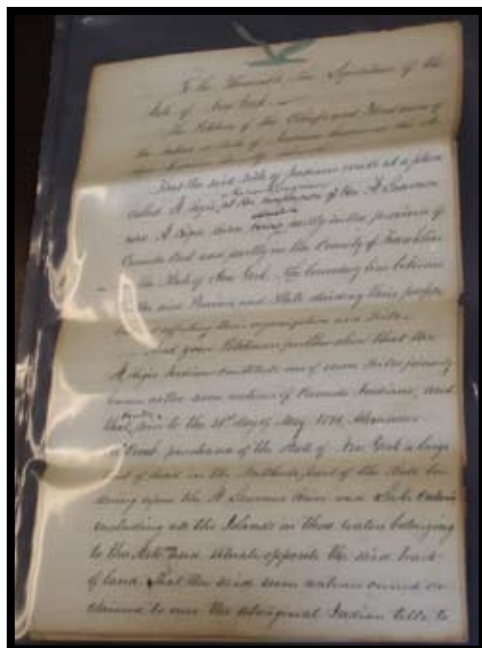 To the Honorable the Legislature of the
State of New York.
The Petition of the Chiefs and Head men of
the
That the said tribe of Indians reside at a place
called St Regis, at the of the St Lawrence
and St Regis rivers partly in the province of
Canada East and partly in the County of Franklin
the State of New York. The boundary line between
the said Province and State dividing their people
but not affecting their organization as a tribe.
And your Petitioners further show that the
St Regis Indians constitute one of seven tribes formerly
known as the seven nations of Canada Indians, and
that prior to the 31st day of May 1796, Alexander
purchased of the State of New York a large
tract of land in the Northerly part of the State bor-
dering upon the St Lawrence river and Lake Ontario
including all the Islands in those waters belonging
to the State and situate opposite the said tract
of land. That the said seven nations owned or
claimed to own the aboriginal Indian title to